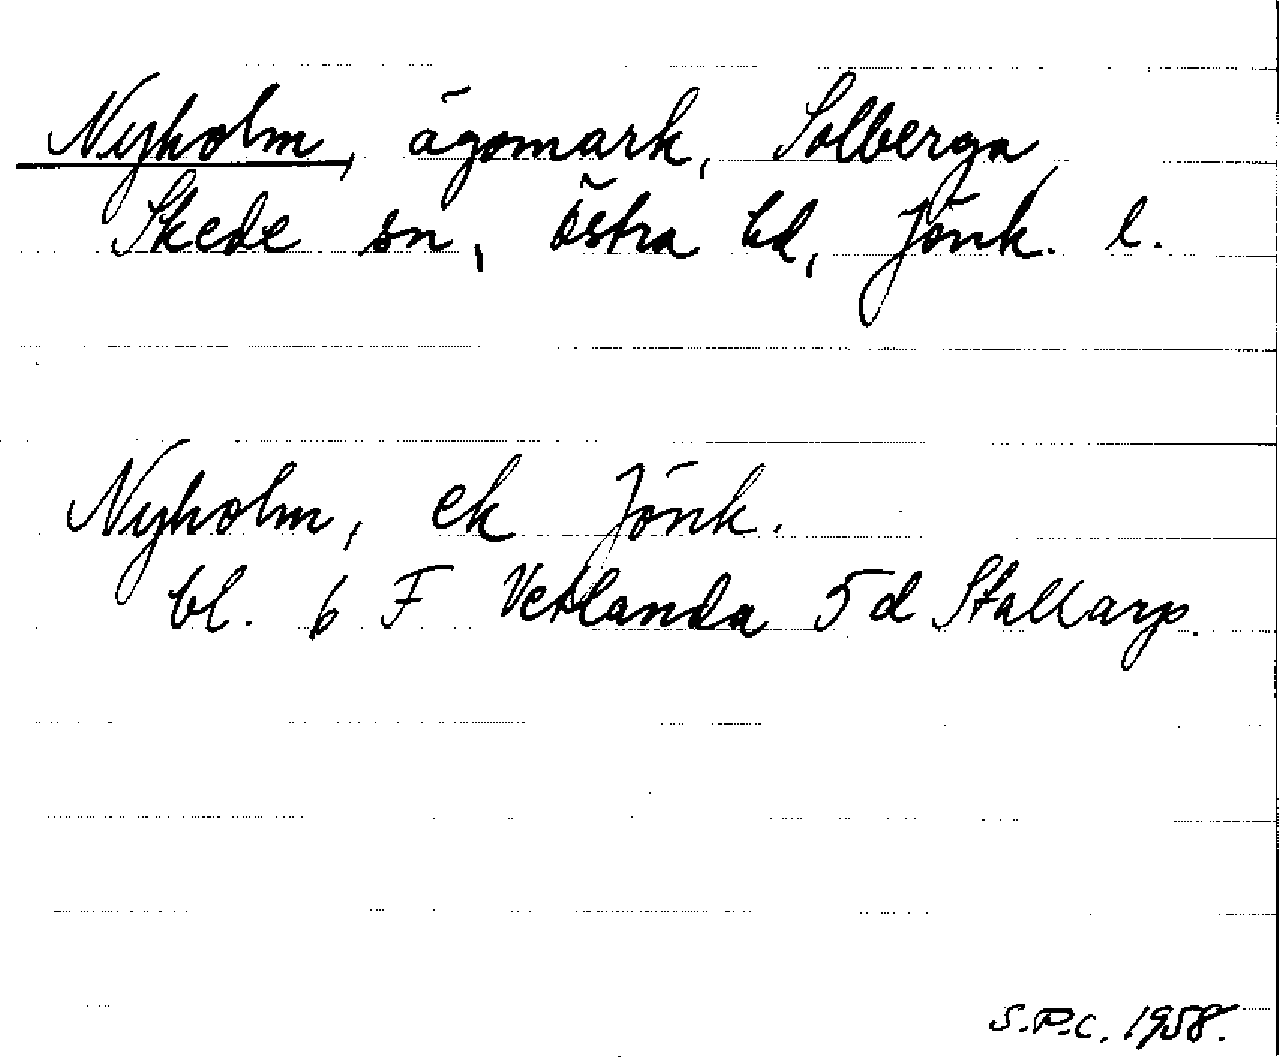 Nyholm, ägomark, Solberga,
Skede sn, östra hd, Jönk. l.
Nyholm, ek Jönk.
bl. 6 F Vetlanda 5d Stallarp.
S.P.C. 1958.